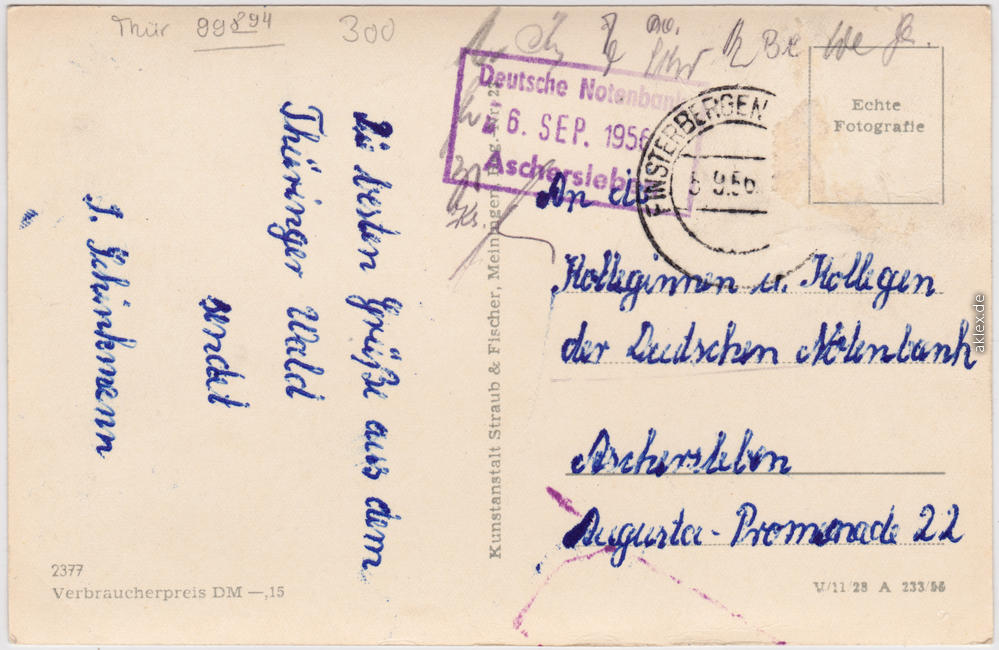 Thür 99894 300
Deutsche Notenbank
6. SEP. 1956
Aschersleben
FINSTERBERGEN
9.56
Echte
Fotografie
Die besten Grüße aus dem
Thüringer Wald
sendet
J. Schünkmann
Kunstanstalt Straub & Fischer, Meiningen
An die
Kolleginnen u. Kollegen
der Deutschen Notenbank
Aschersleben
Augusta-Promenade 22
2377
Verbraucherpreis DM —,15
V/11/28 A 233/56
aklex.de